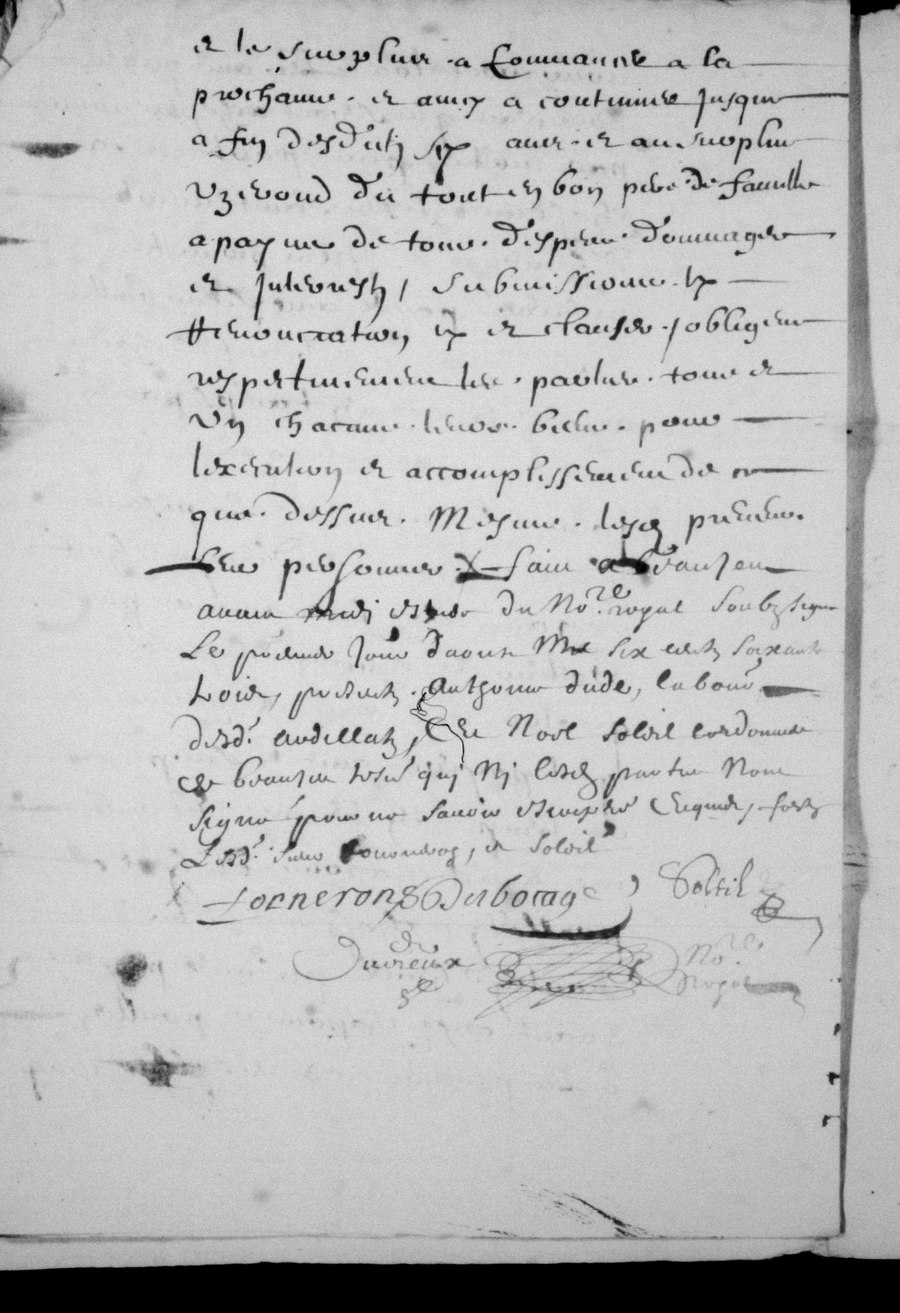 et le surplus a Commancer a la
prochaine et ainsy a continuer jusque
a fin desditz six ans et au surplus
uzeront du tout en bon pere de famille
a payne de tous despens dommages
et Interestz, submissions &
Renonciation & et clauses obligent
respectivement les parties tous et
un chacuns leurs biens pour
lexecution et accomplissement de ce
que dessus mesme lesd preneurs
leurs personnes fait a
avant midi du Nore royal Soubzsigne
Le premier Jour daoust Mil six centz soixante
trois, presentz Anthoine labour
desd. et Noel Soleil Cordonnier
de qui Ni lesd parties nont
signé pour ne savoir Enquis, fors
Lesd. et Soleil
Forneron Desbocage Solleil
Duvreux Nore
Royal